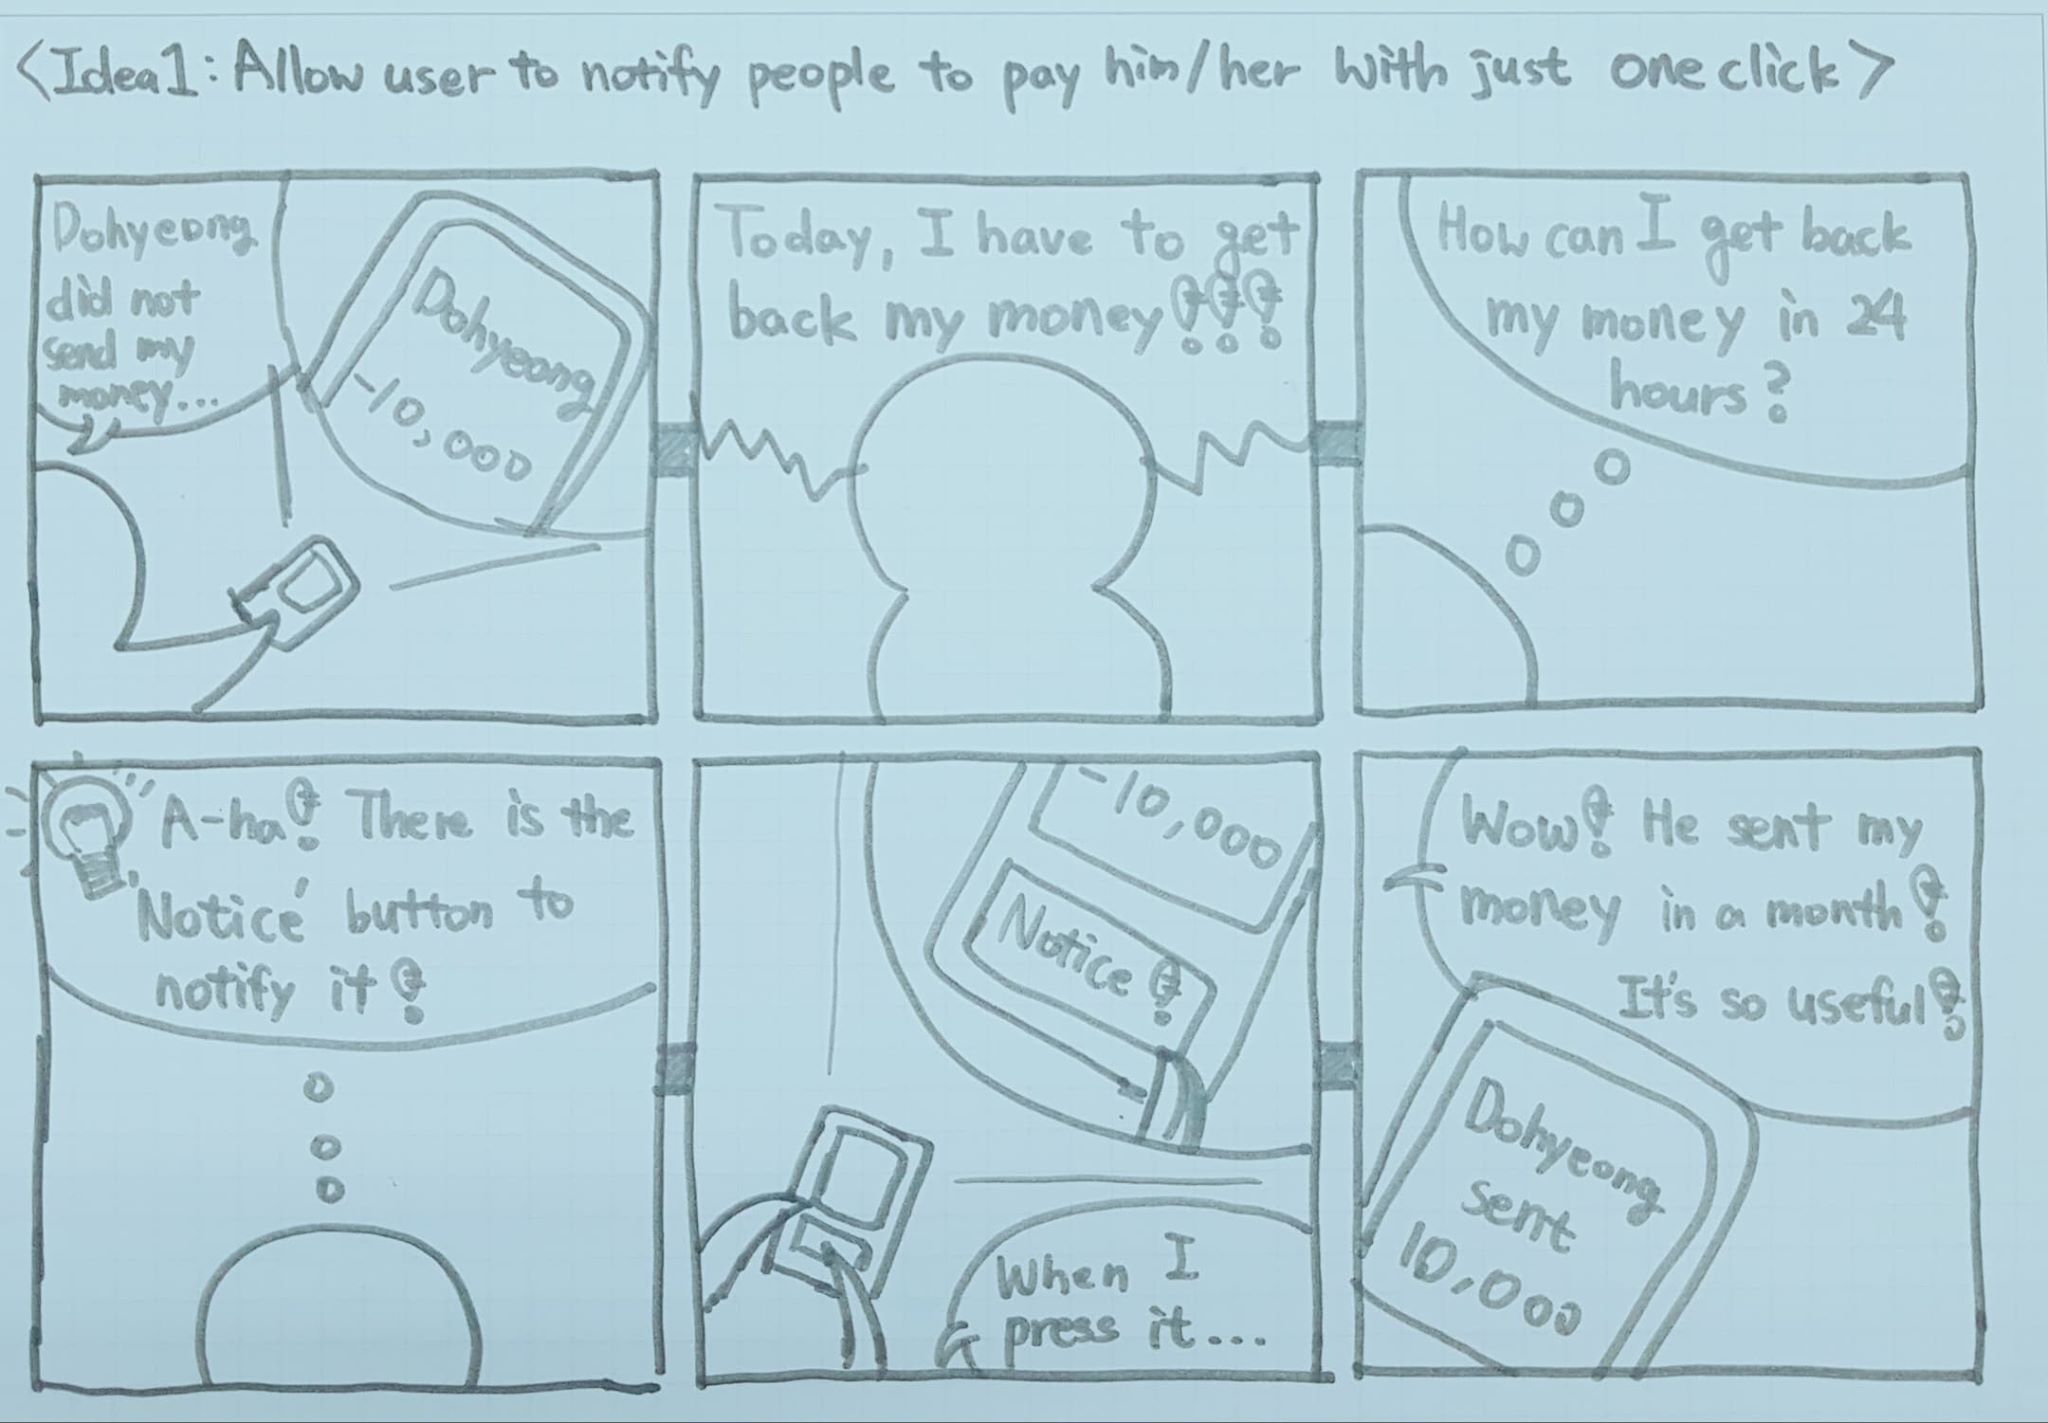 <Idea1: Allow user to notify people to pay him/her with just one click>
Dohyeong
did not
send my
money...
Dohyeong
-10,000
Today, I have to get
back my money!!!
How can I get back
my money in 24
hours?
A-ha! There is the
'Notice' button to
notify it!
-10,000
Notice!
When I
press it...
Wow! He sent my
money in a month!
It's so useful!
Dohyeong
sent
10,000